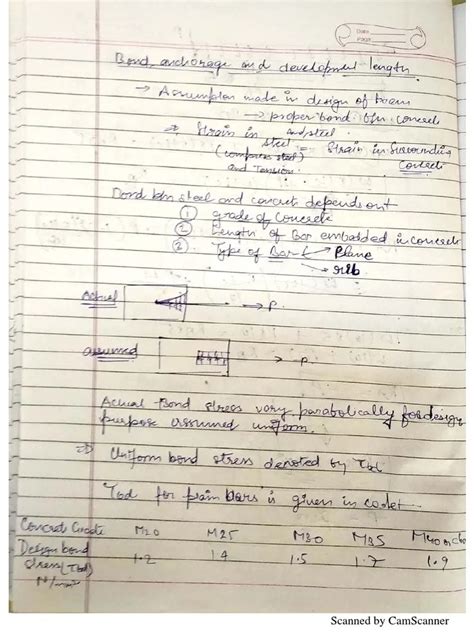 Date
Page
Bond, anchorage and development length
→ Assumption made in design of beam
→ proper bond btn concrete
and steel
⇒ Strain in steel = Strain in surrounding
(compress steel) concrete
and Tension
Bond btn steel and concrete depends out
① grade of concrete
② Length of Bar embedded in concrete
③ Type of Bar → Plane
→ rib
Actual → P.
assumed → P
Actual Bond stress vary parabolically for design
purpose assumed uniform.
⇒ Uniform bond stress denoted by τbd
τbd for plain bars is given in code
Concrete Grade M20 M25 M30 M35 M40
Design bond 1.2 1.4 1.5 1.7 1.9
stress (τbd)
N/mm²
Scanned by CamScanner